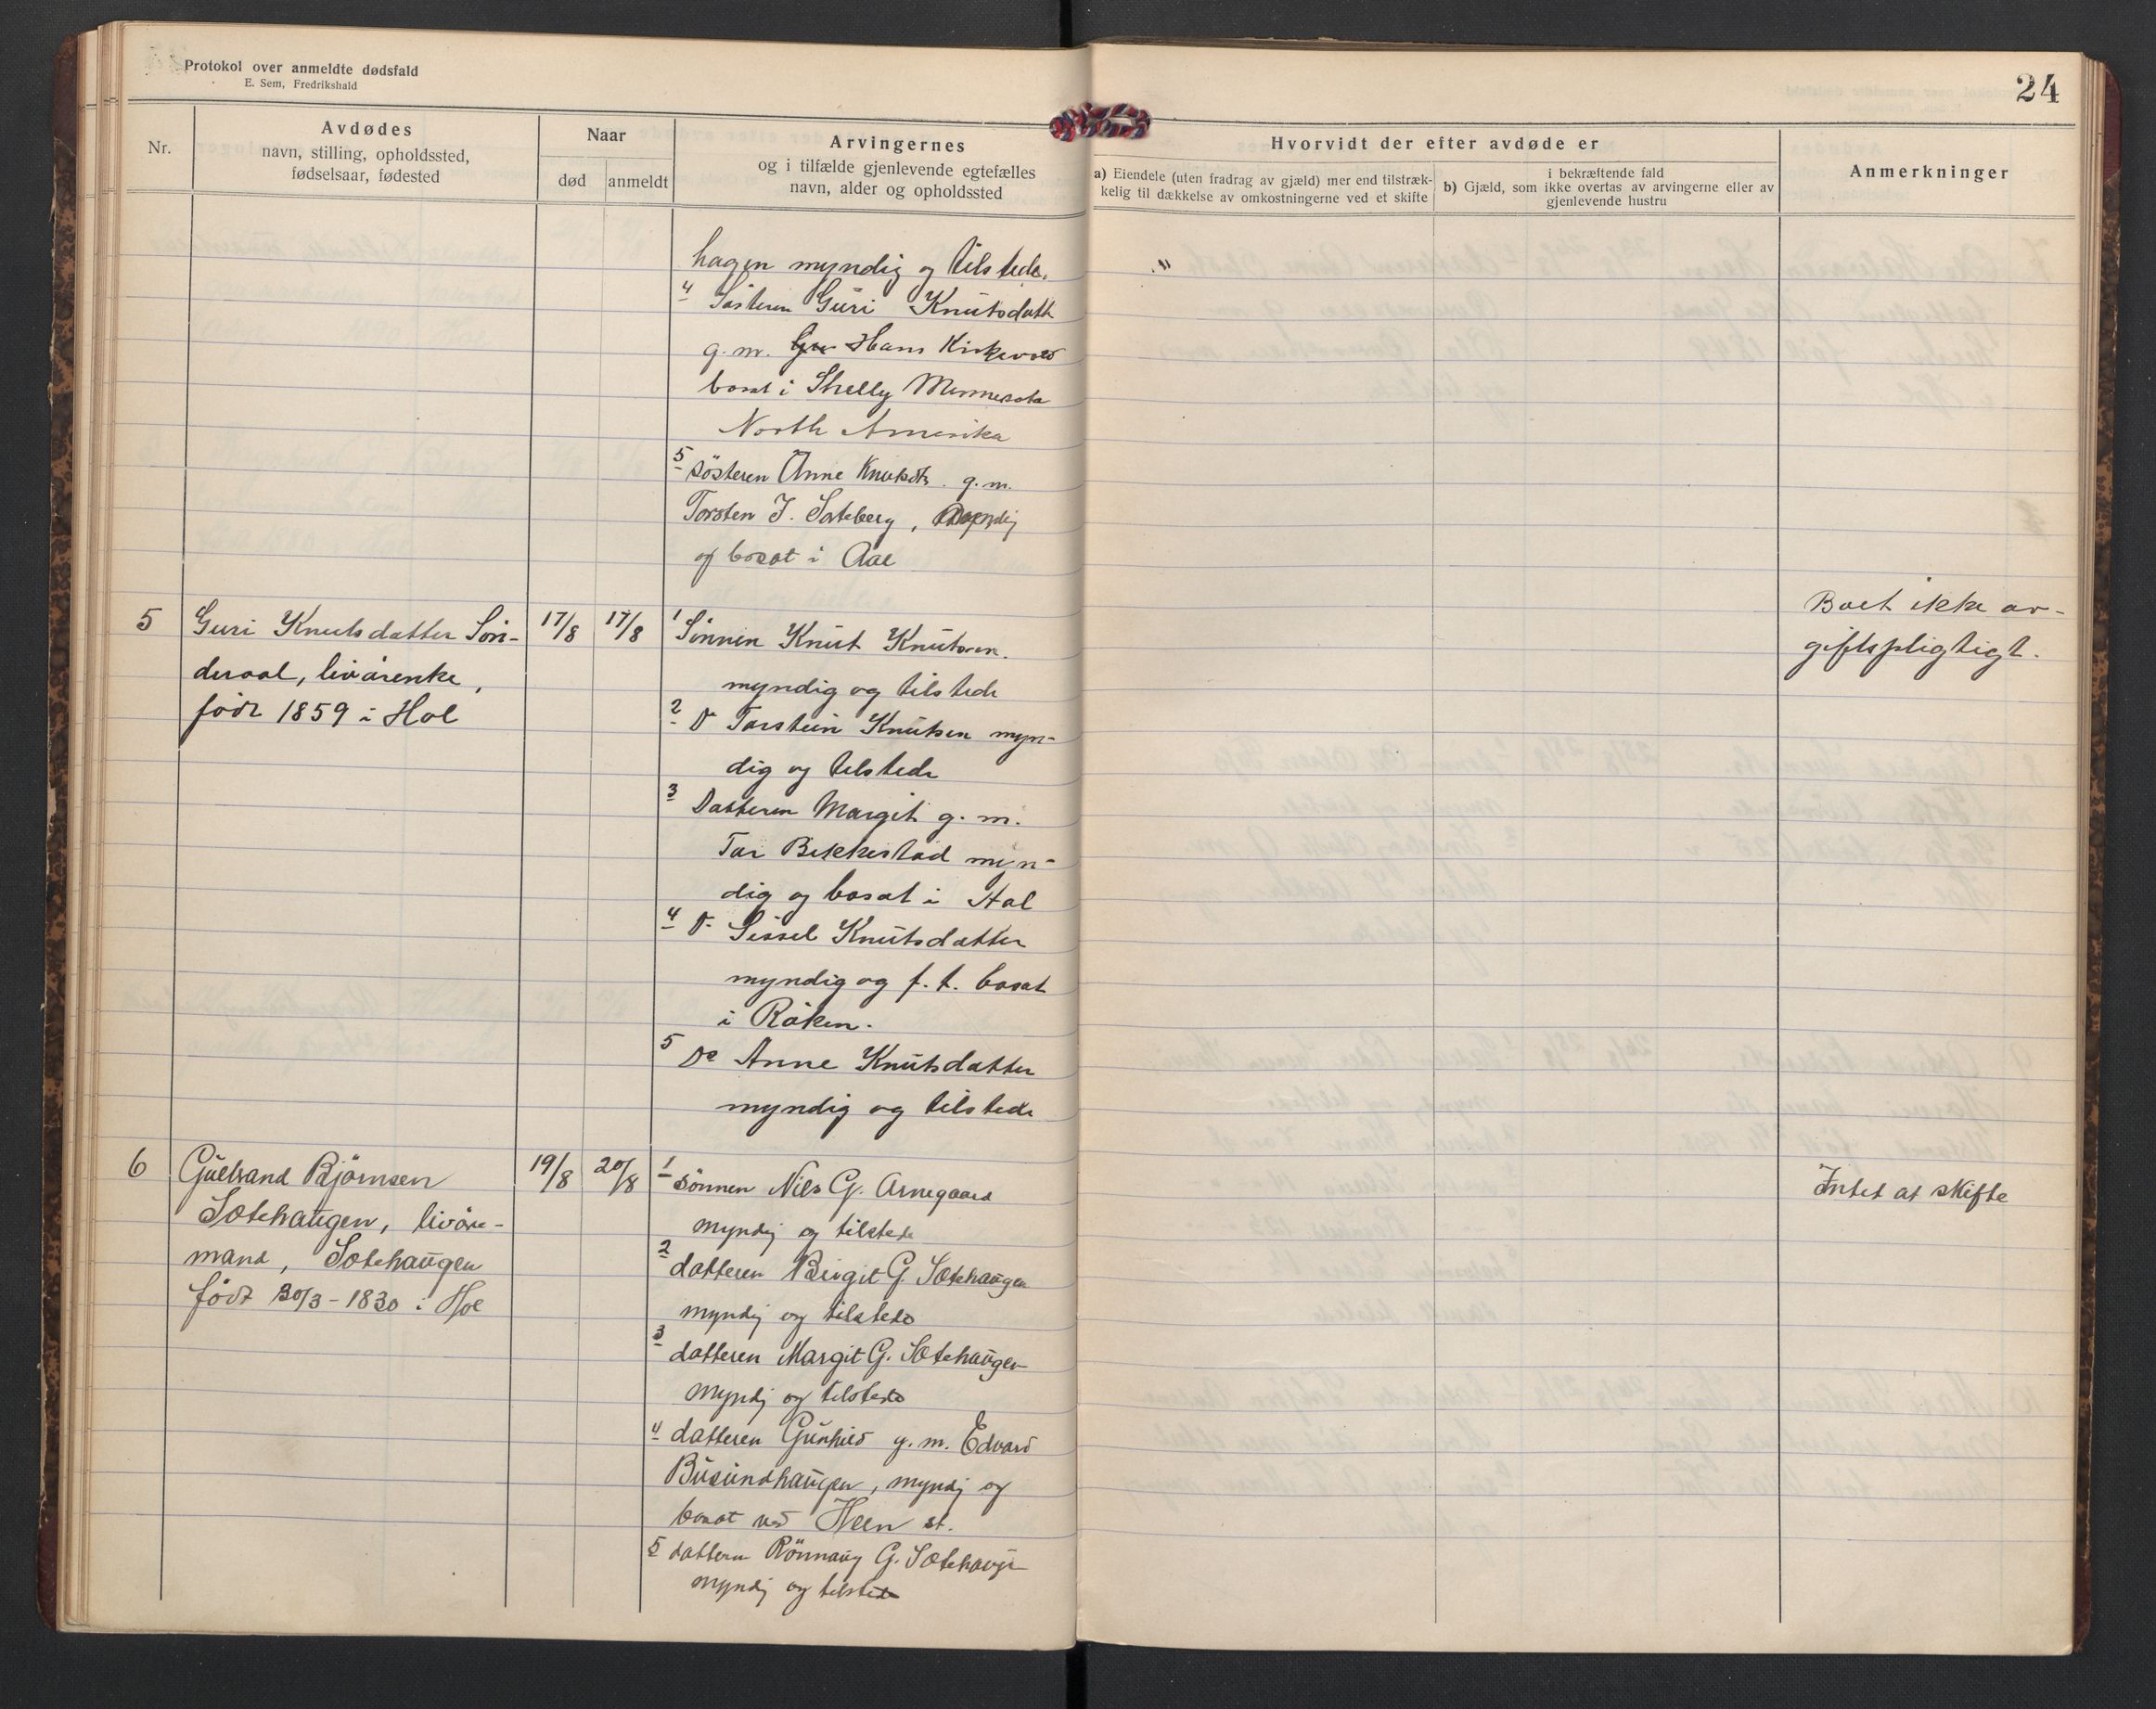 Protokol over anmeldte dødsfald
E. Sem, Fredrikshald
24
Nr.
Avdødes
navn, stilling, opholdssted,
fødselsaar, fødested
Naar
død
anmeldt
Arvingernes
og i tilfælde gjenlevende egtefælles
navn, alder og opholdssted
Hvorvidt der efter avdøde er
a) Eiendele (uten fradrag av gjæld) mer end tilstræk-
kelig til dækkelse av omkostningerne ved et skifte
i bekræftende fald
b) Gjæld, som ikke overtas av arvingerne eller av
gjenlevende hustru
Anmerkninger
hagen myndig og tilstede.
4 Søsteren Guri Knutsdatt
g. m. Hans Kirkevold
bosat i Shelly Minnesota
North Amerika
5 søsteren Anne Knutsdtr. g. m.
Torsten J. Sateberg, myndig
og bosat i Aal
5 Guri Knutsdatter Sön-
deraal, livörenke,
född 1859 i Hol
17/8 17/8
1 Sønnen Knut Knutsen.
myndig og tilstede
2 Do Torstein Knutsen myn-
dig og tilstede
3 Datteren Margit g. m.
Tor Bekkestad myn-
dig og bosat i Hol
4 Do Sissel Knutsdatter
myndig og f. t. bosat
i Röken.
5 Do Anne Knutsdatter
myndig og tilstede
Boet ikke av-
giftspligtigt.
6 Gulbrand Björnsen
Sotehaugen, livöre-
mand, Sotehaugen
född 30/3-1830 i Hol
19/8 20/8
1 sönnen Nils G. Arnegaard
myndig og tilstede
2 datteren Birgit G. Sotehaugen
myndig og tilstede
3 datteren Margit G. Sotehaugen
myndig og tilstede
4 datteren Gunhild g. m. Edvard
Busundhaugen, myndig og
bosat ved Heen st.
5 datteren Rönnaug G. Sotehaugen
myndig og tilstede
Intet at skifte